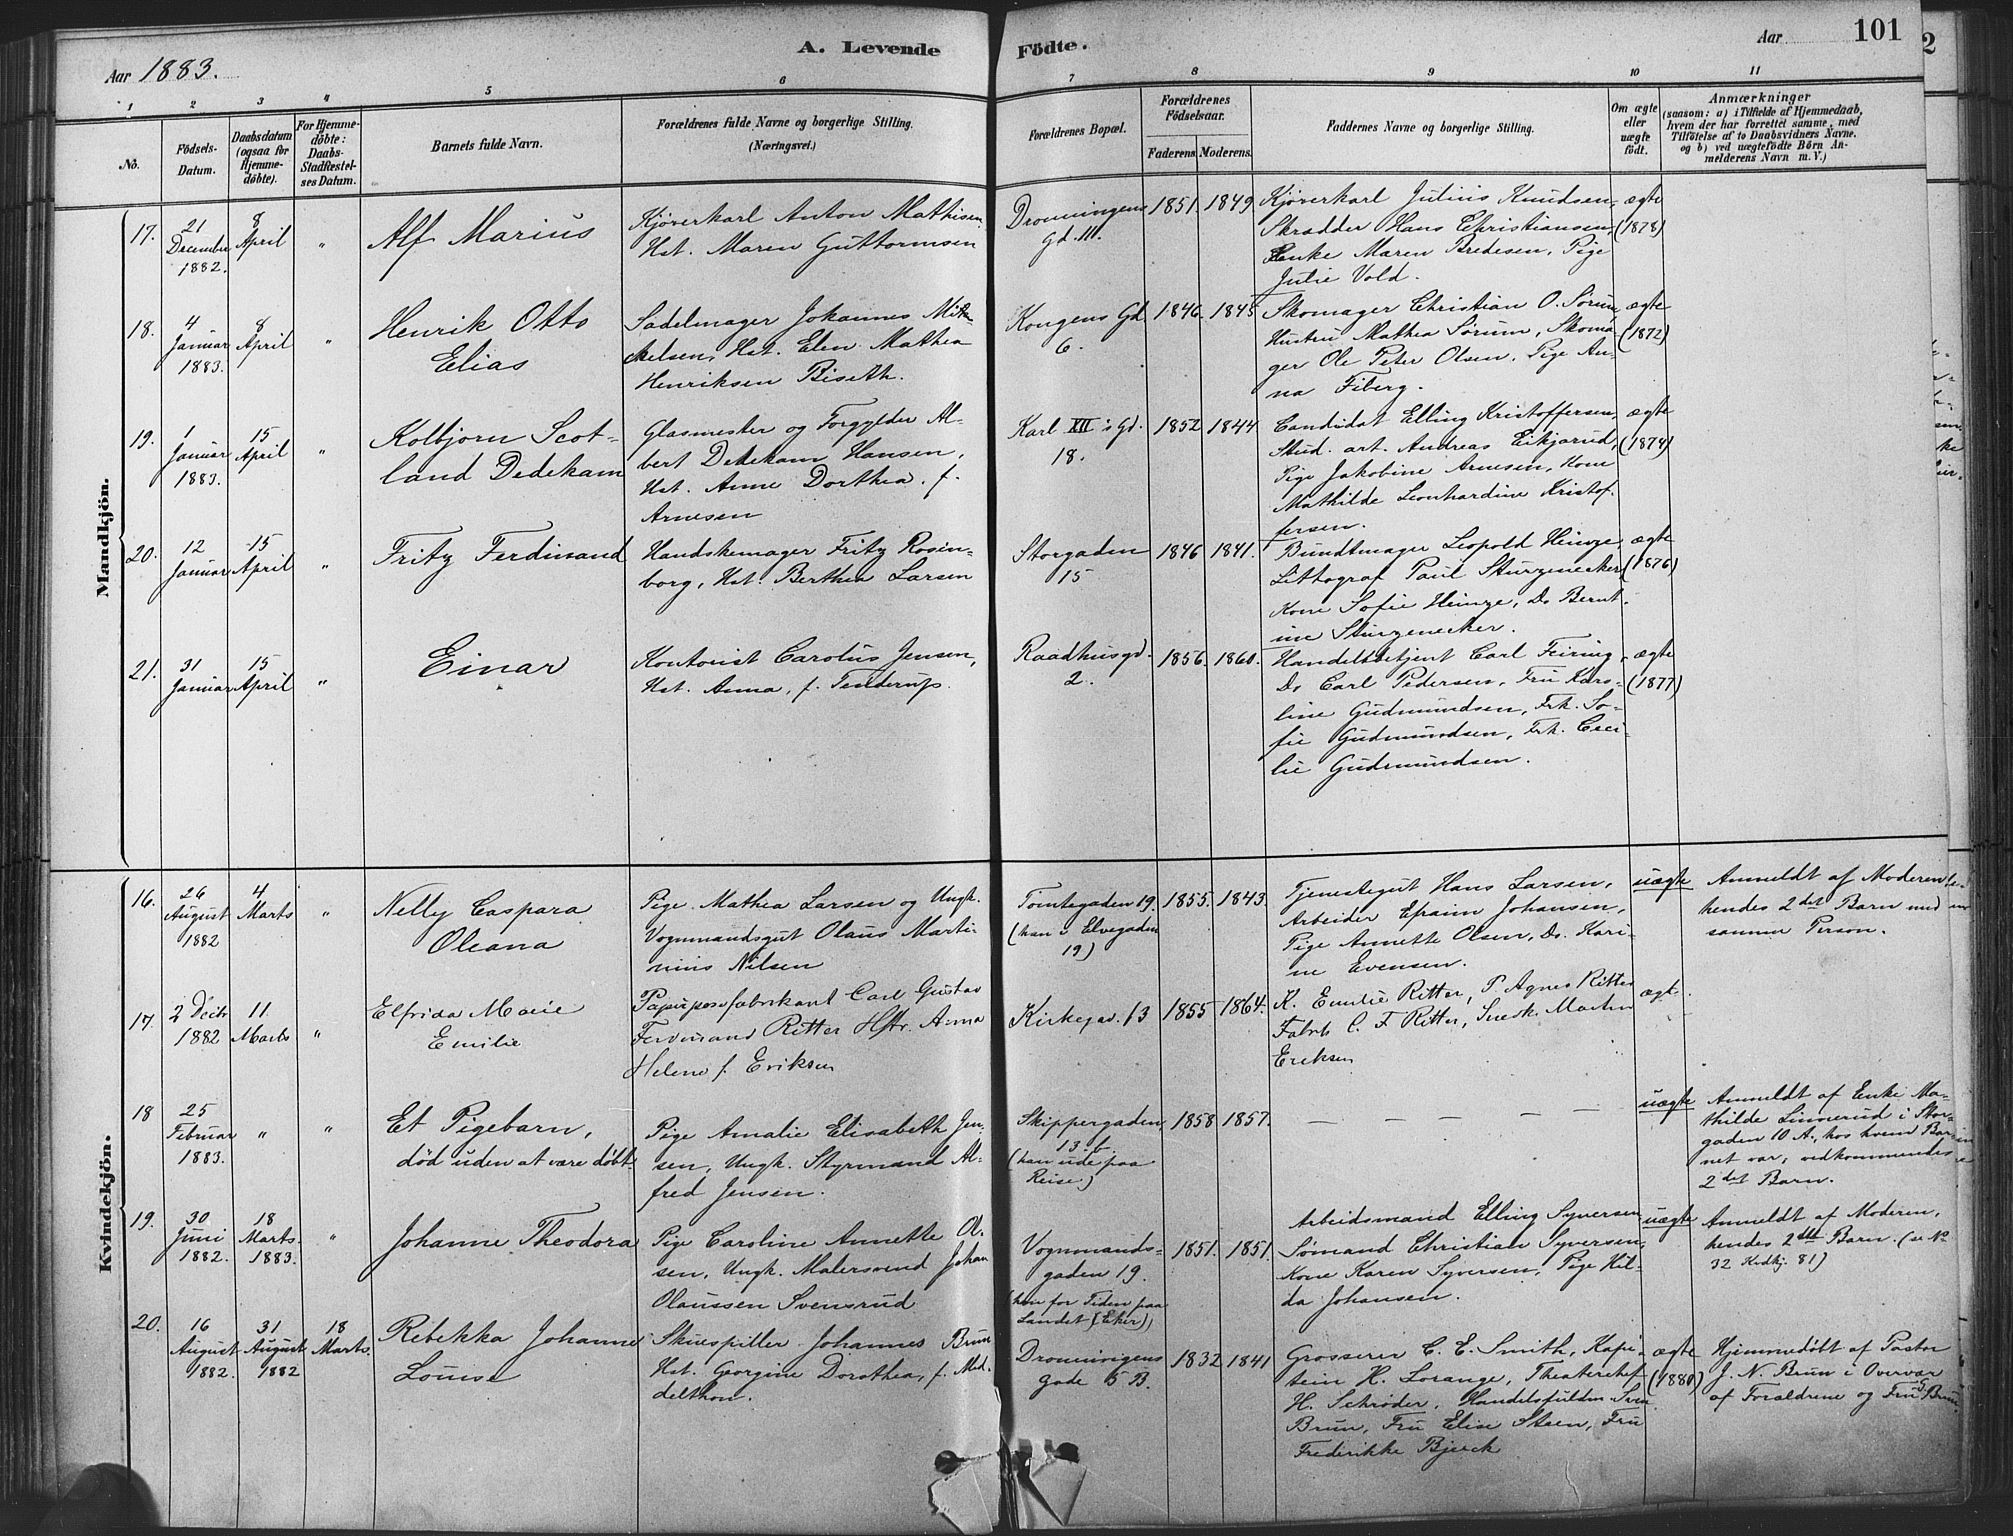 A. Levende Födte.
Aar 101
Aar 1883.
1 2 3 4 5 6 7 8 9 10 11
No.
Födsels-
Datum.
Daabsdatum
(ogsaa for
Hjemme-
döbte).
For Hjemme-
döbte:
Daabs-
Stadfæstel-
ses Datum.
Barnets fulde Navn.
Forældrenes fulde Navne og borgerlige Stilling.
(Næringsvei.)
Forældrenes Bopæl.
Forældrenes
Födselsaar.
Faderens. Moderens.
Faddernes Navne og borgerlige Stilling.
Om ægte
eller
uægte
födt.
Anmærkninger
(saasom: a) i Tilfælde af Hjemmedaab,
hvem der har forrettet samme, med
Tilföielse af to Daabsvidners Navne,
og b) ved uægtefödte Börn An-
melderens Navn m. V.)
Mandkjön.
17.
21
December
1882.
8
April
"
Alf Marius
Kjørerkarl Anton Mathisen
Hst. Maren Guttormsen
Dronningens
Gd. 111.
1851. 1849.
Kjørerkarl Julius Knudsen,
Skrædder Hans Christiansen,
Enke Maren Bredesen, Pige
Julie Vold.
ægte
(1878)
18.
4
Januar
1883.
8
April
"
Henrik Otto
Elias
Sadelmager Johannes Mik-
kelsen, Hst. Elen Mathea
Henriksen Biseth.
Kongens Gd
6.
1846. 1845
Skomager Christian O. Sørum
Hustru Mathea Sørum, Skoma-
ger Ole Peter Olsen, Pige An-
na Fiberg.
ægte
(1872)
19.
1
Januar
1883.
15
April
"
Kolbjørn Scot-
land Dedekam
Glasmester og Forgylder Al-
bert Dedekam Hansen,
Hst. Anne Dorthea f.
Arnesen
Karl XII's Gd.
18.
1852 1844
Candidat Elling Kristoffersen,
Stud. art. Andreas Eikjarud,
Pige Jakobine Arnesen, Kone
Mathilde Leonhardine Kristof-
fersen.
ægte
(1874)
20.
12
Januar
15
April
"
Fritz Ferdinand
Handskemager Fritz Rosin-
borg, Hst. Berthea Larsen
Storgaden
15
1846 1841.
Bundtmager Leopold Heinze,
Littograf Paul Sturzenecker
Kone Sofie Heinze, Do Bernt-
ine Sturzenecker.
ægte
(1876)
21.
31
Januar
15
April
"
Einar
Kontorist Carolus Jensen,
Hst. Anna, f. Tenderup.
Raadhusgd.
2.
1856. 1860.
Handelsbetjent Carl Feiring,
Do Carl Pedersen, Fru Karo-
line Gudmundsen, Frk. So-
fie Gudmundsen, Frk. Ceci-
lie Gudmundsen.
ægte
(1877)
Kvindekjön.
16.
26
August
1882
4
Marts
"
Nelly Caspara
Oleana
Pige Mathea Larsen og Ungk.
Vognmandsgut Olaus Marti-
nius Nilsen
Tomtegaden 19.
(han i Elvegaden
19)
1855. 1843.
Tjenestegut Hans Larsen,
Arbeider Efraim Johansen,
Pige Annette Olsen, Do. Kari-
ne Evensen.
uægte
Anmeldt af Moderen
hendes 2det Barn med
samme Person.
17.
2 Decbr
1882
11.
Marts
"
Elfrida Marie
Emilie
Papirposefabrikant Carl Gustav
Ferdinand Ritter Hstr. Anna
Helene f. Eriksen
Kirkegad. 13
1855 1864.
K. Emilie Ritter, P. Agnes Ritter
Fabrk C. F. Ritter, Snedk. Morten
Eriksen
ægt.
18
25
Februar
1883.
"
"
Et Pigebarn,
død uden at være døbt.
Pige Amalie Elisabeth Jen-
sen, Ungk. Styrmand Al-
fred Jensen.
Skippergaden
13.b.
(han ude paa
Reise.)
1858 1857.
— — — — —
uægte
Anmeldt af Enke Ma-
thilde Linnerud i Stor-
gaden 10 A, hos hvem Bar-
net var, vedkommendes
2det Barn.
19.
30
Juni
1882.
18
Marts
1883.
"
Johanne Theodora
Pige Caroline Annette Ol-
sen, Ungk. Malersvend Johan
Olaussen Svensrud
Vognmands-
gaden 19.
(han for Tiden paa
Landet (Eker))
1851. 1851.
Arbeidsmand Elling Syversen
Sømand Christian Syversen,
Kone Karen Syversen, Pige Hil-
da Johansen.
uægte
Anmeldt af Moderen,
hendes 2det Barn. (se No
32 Kvdkj. 81)
20.
16
August
1882.
31
August
1882
18
Marts.
Rebekka Johanne
Louise
Skuespiller Johannes Brun
Hst. Georgine Dorothea, f. Mid-
delthon.
Dronningens
gade 5 B.
1832 1841
Grosserer C. E. Smith, Kapi-
tein H. Lorange, Theaterchef
H. Schrøder, Handelsfuldm. Sven
Brun, Fru Elise Steen, Fru
Frederikke Bjerck
ægte
(1880)
Hjemmedøbt af Pastor
J. N. Brun i Overvær
af Forældrene og Fru Brun.